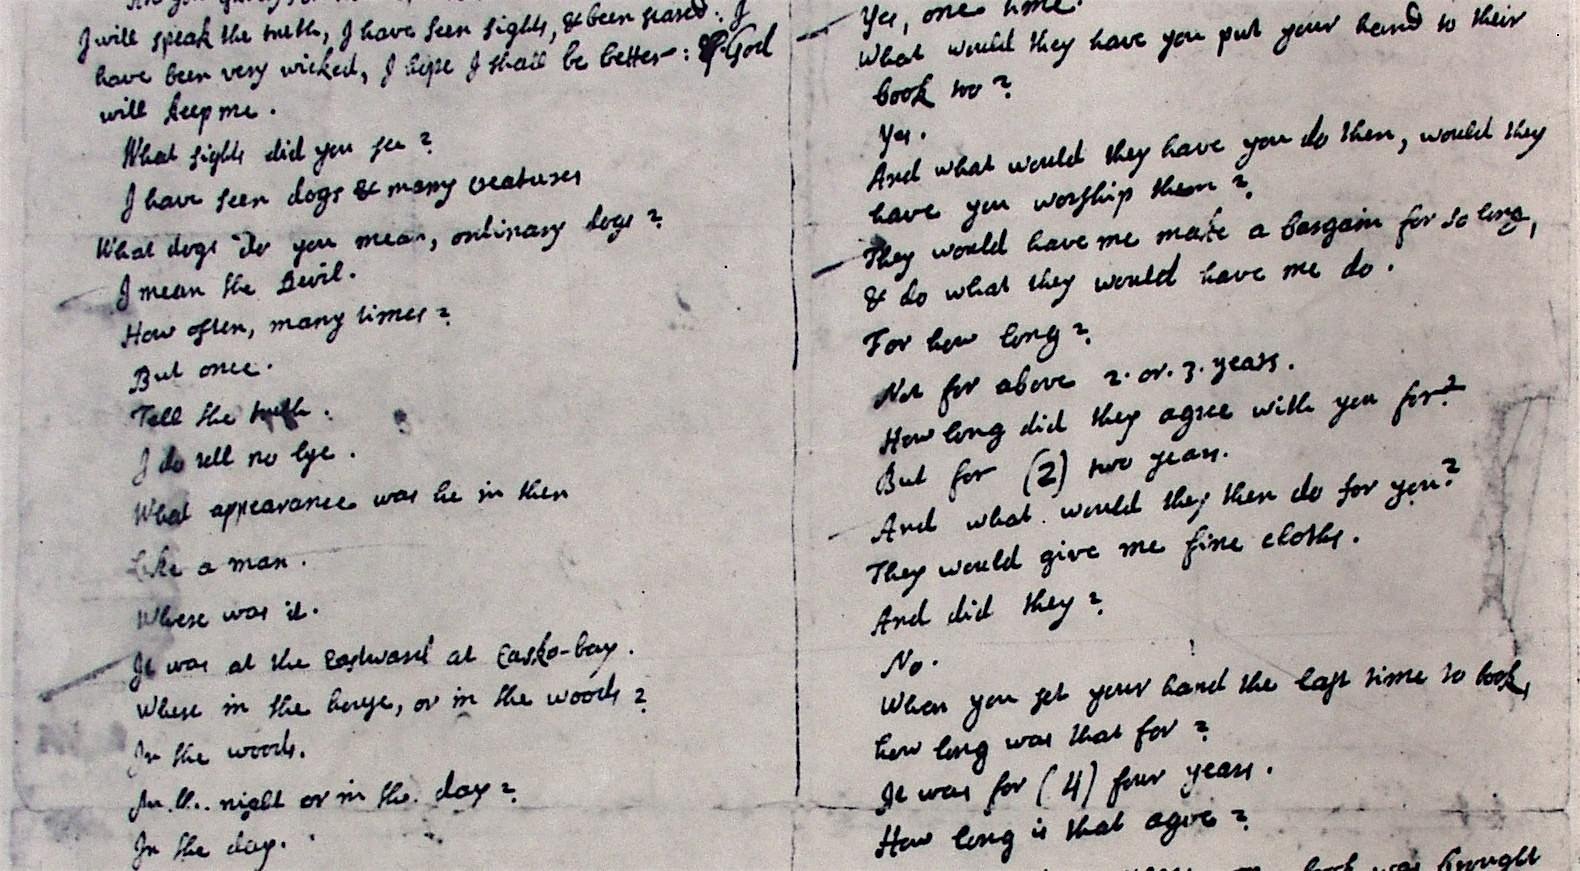 I will speak the truth, I have seen sights, & been scared: I
have been very wicked, I hope I shall be better: & God
will keep me.
What sights did you see?
I have seen dogs & many creatures
What dogs do you mean, ordinary dogs?
I mean the Devil.
How often, many times?
But once.
Tell the truth.
I do tell no lye.
What appearance was he in then
Like a man.
Where was it.
It was at the Eastward at Casko-bay.
Where in the house, or in the woods?
In the woods.
In the night or in the day?
In the day.
Yes, one time.
What would they have you put your hand to their
book too?
Yes.
And what would they have you do then, would they
have you worship them?
They would have me make a bargain for so long,
& do what they would have me do.
For how long?
Not for above 2. or. 3. years.
How long did they agree with you for?
But for (2) two years.
And what would they then do for you?
They would give me fine cloths.
And did they?
No.
When you set your hand the last time to book,
how long was that for?
It was for (4) four years.
How long is that agoe?
book was brought